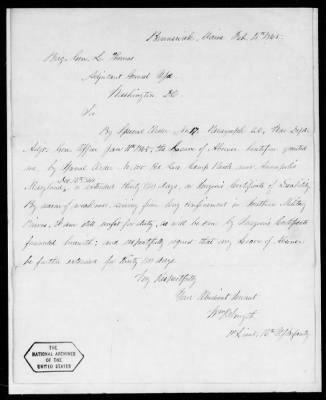 Brunswick, Maine Feb. 1865.
Brig. Gen. L. Thomas
Adjutant General USA
Washington D.C.
Sir
By Special Order No. 17. Paragraph War Dept.
Adjt. Gen. Office Jan 11th 1865, the Leave of Absence heretofore granted
me, by Special Order No. Hd. Qrs. Camp Parole near Annapolis
Maryland, is extended thirty days, on Surgeon's Certificate of Disability
By reason of weakness arising from long confinement in Southern Military
Prisons, I am still unfit for duty, as will be seen by Surgeon's Certificate
forwarded herewith; and respectfully request that my Leave of Absence
be further extended for thirty days.
Very Respectfully
Your Obedient Servant
Wm.
1st Lieut, 16th Infantry
THE
NATIONAL ARCHIVES
OF THE
UNITED STATES